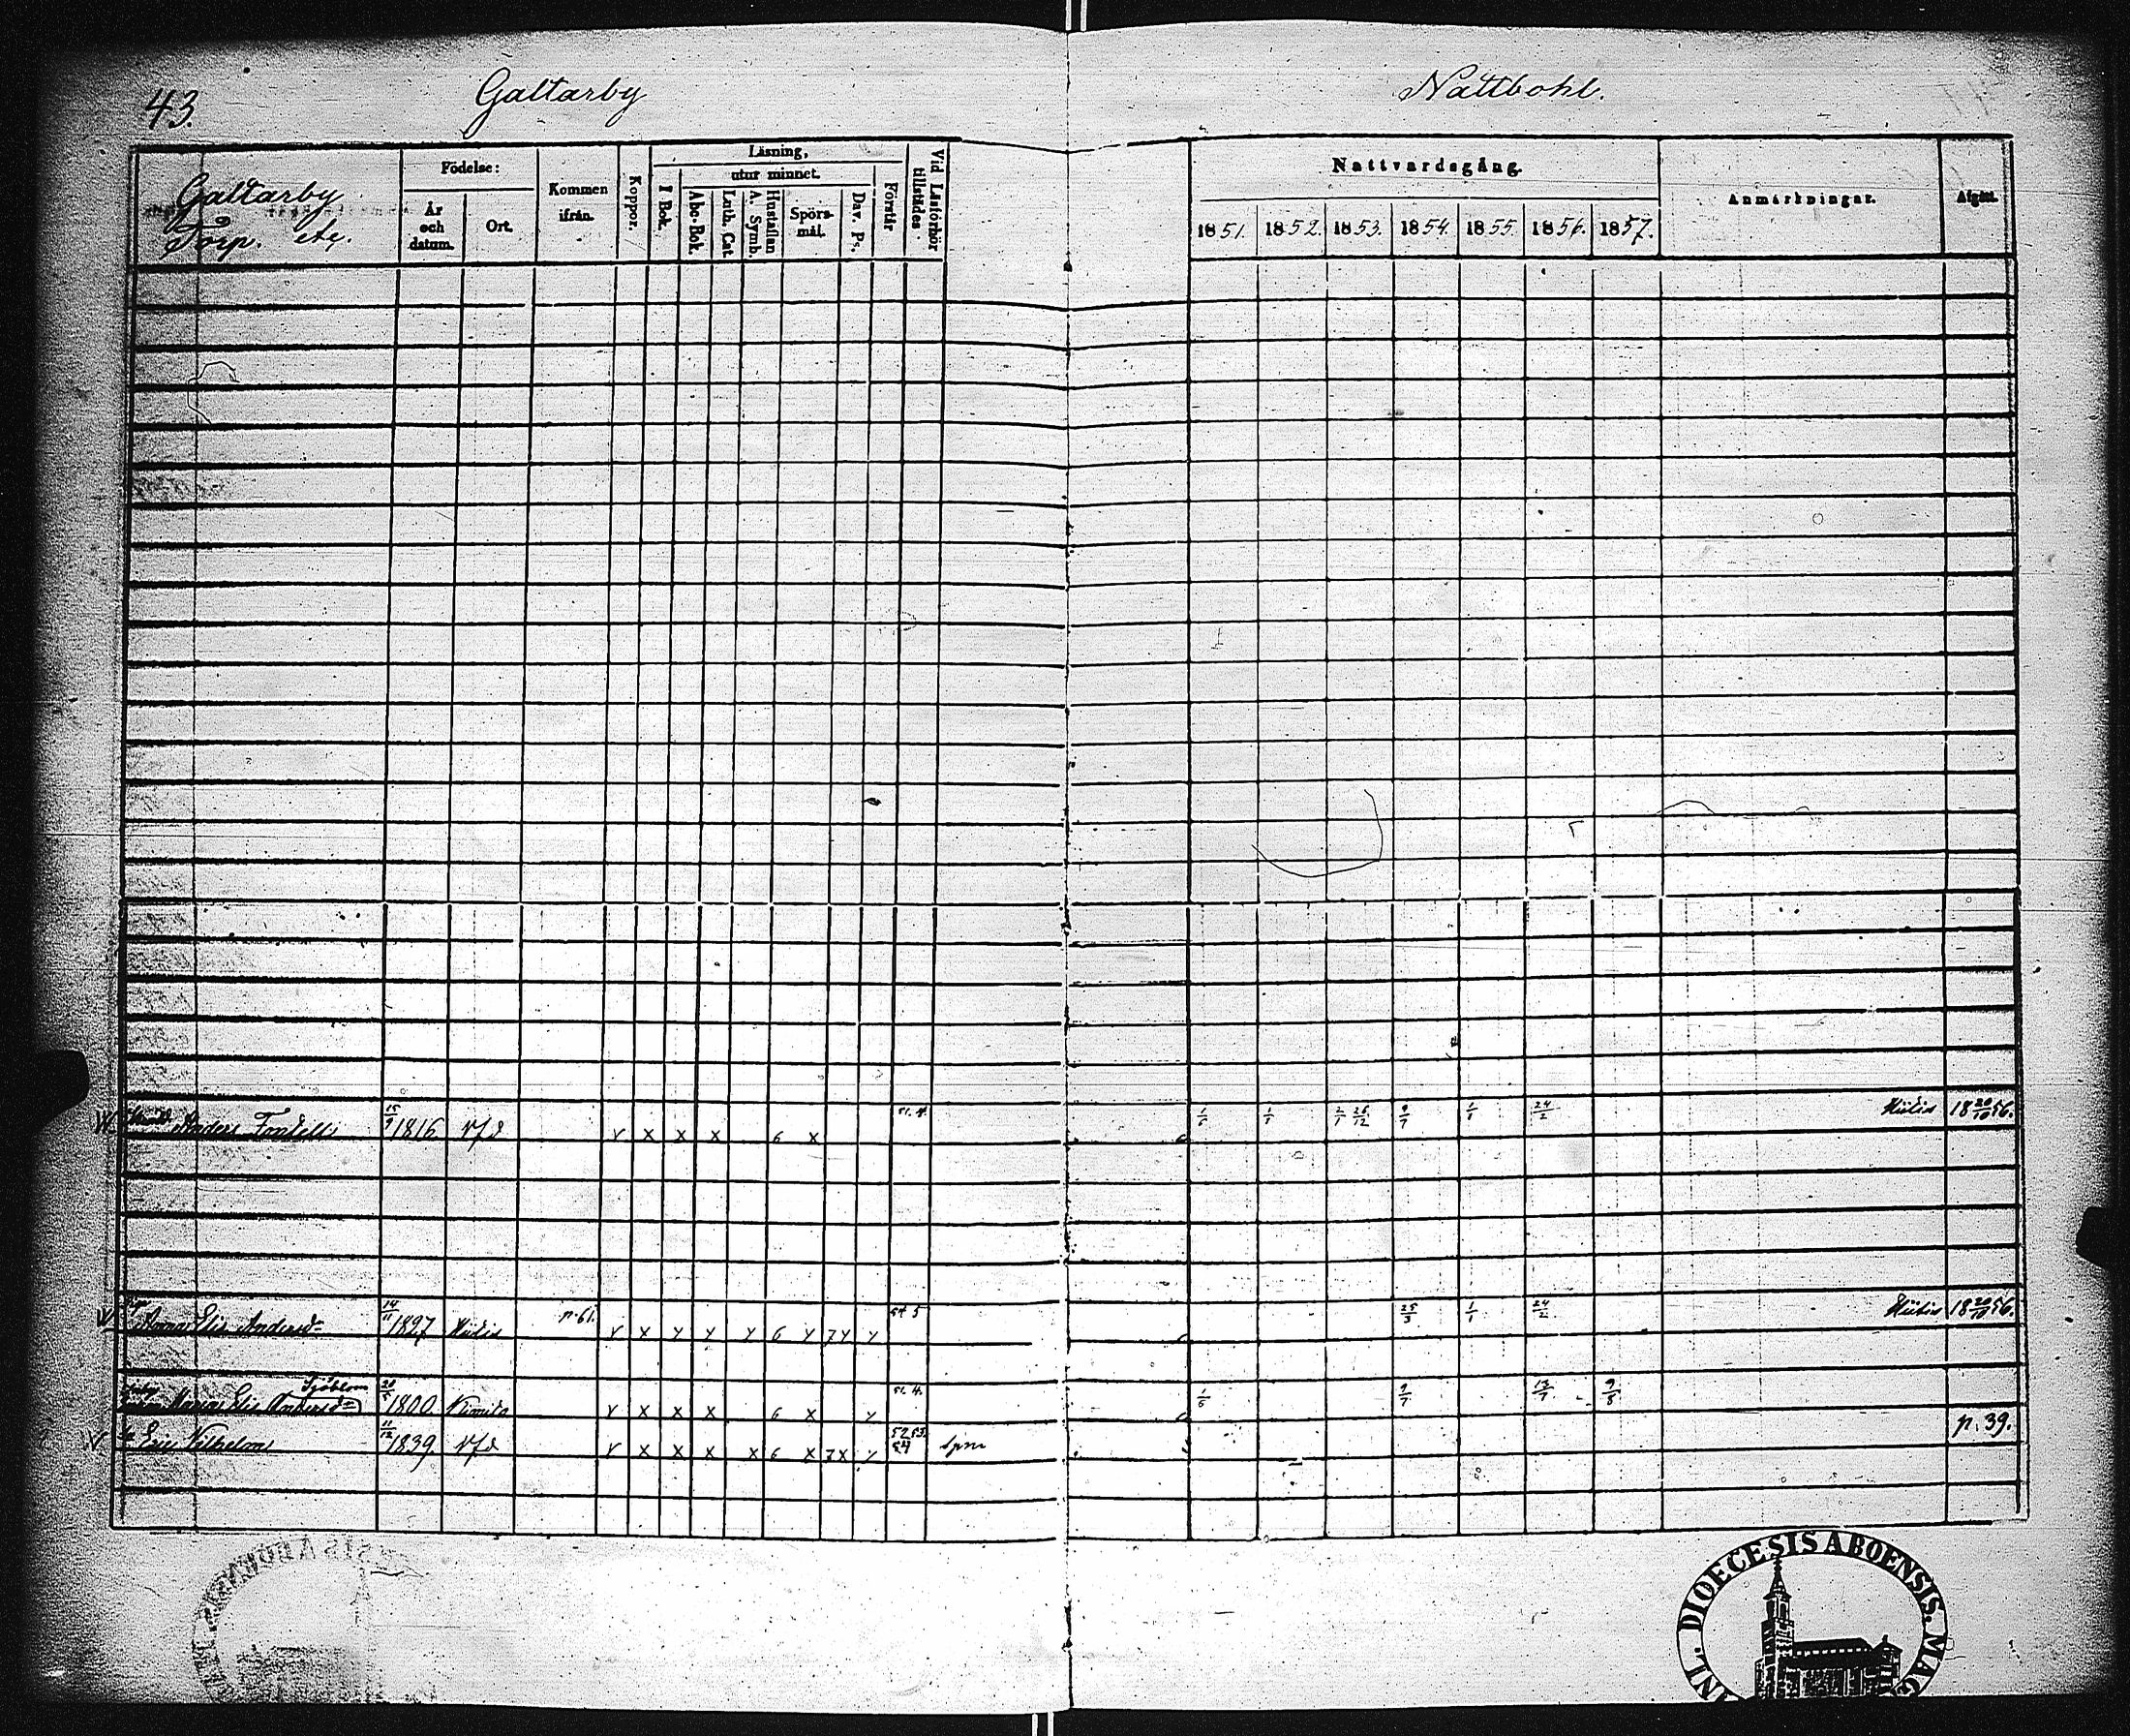 43. Galtarby Nattbohl.
Galtarby
Torp. etc.
Födelse:
År och datum.
Ort.
Kommen ifrån.
Koppor.
Läsning,
utur minnet.
I Bok.
Abc-Bok.
Luth. Cat
A. Symb.
Hustaflan
Spörs-mål.
Dav. Ps.
Förstår
Vid Läsförhör tillstädes.
Nattvardsgång.
1851. 1852. 1853. 1854. 1855. 1856. 1857.
Anmärkningar.
Afgått.
Anders Fondell 15/9 1816 v x x x 6 x 51. 1/6 1/1 2/1 26/12 9/7 1/1 24/2 Hitis 18 20/10 56.
Anna Elis. Andersd. 14/11 1827 Hitis p. 61. v x y y y 6 y 7 y y 54 5 25/3 1/1 24/2 Hitis 18 20/10 56.
Sjöblom
Maria Elis. Andersd. 1800 Kimito v x x x 6 x y 51. 4. 1/6 9/7 13/7 9/8
Eric Vilhelm 11/12 1839 v x x x x 6 x 7 x y 52 53. 54 p. 39.
DIOECESIS ABOENSIS. MAG